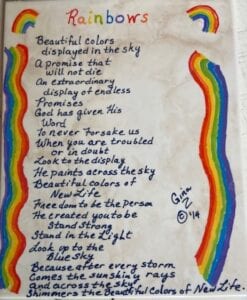 Rainbows
Beautiful colors
displayed in the sky
A promise that
will not die
An extraordinary
display of endless
Promises
God has given His
Word
To never Forsake us
When you are troubled
or in doubt
Look to the display
He paints across the sky
Beautiful colors of
New Life
Freedom to be the person
He created you to be
Stand Strong
Stand in the Light
Look up to the
Blue Sky
Because after every storm
Comes the sunshiny rays
and across the sky
Shimmers the Beautiful Colors of New Life.
© '14